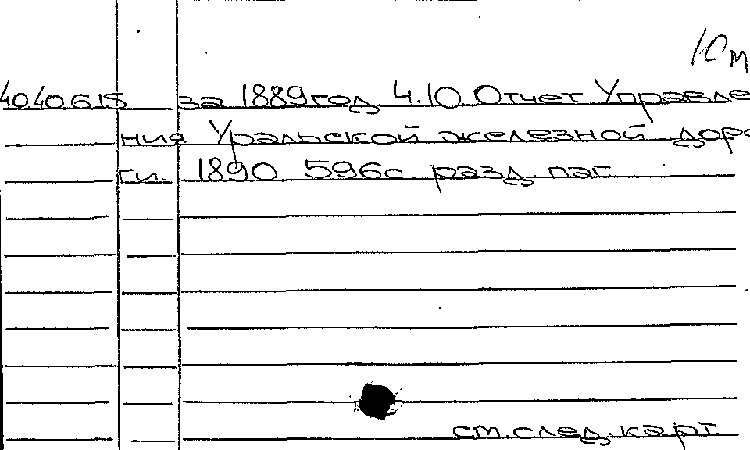 4040615 за 1889год 4.10 Отчет Управле
ния Уральской железной доро
ги. 1890 596с разд. паг.
ст.след.карт.